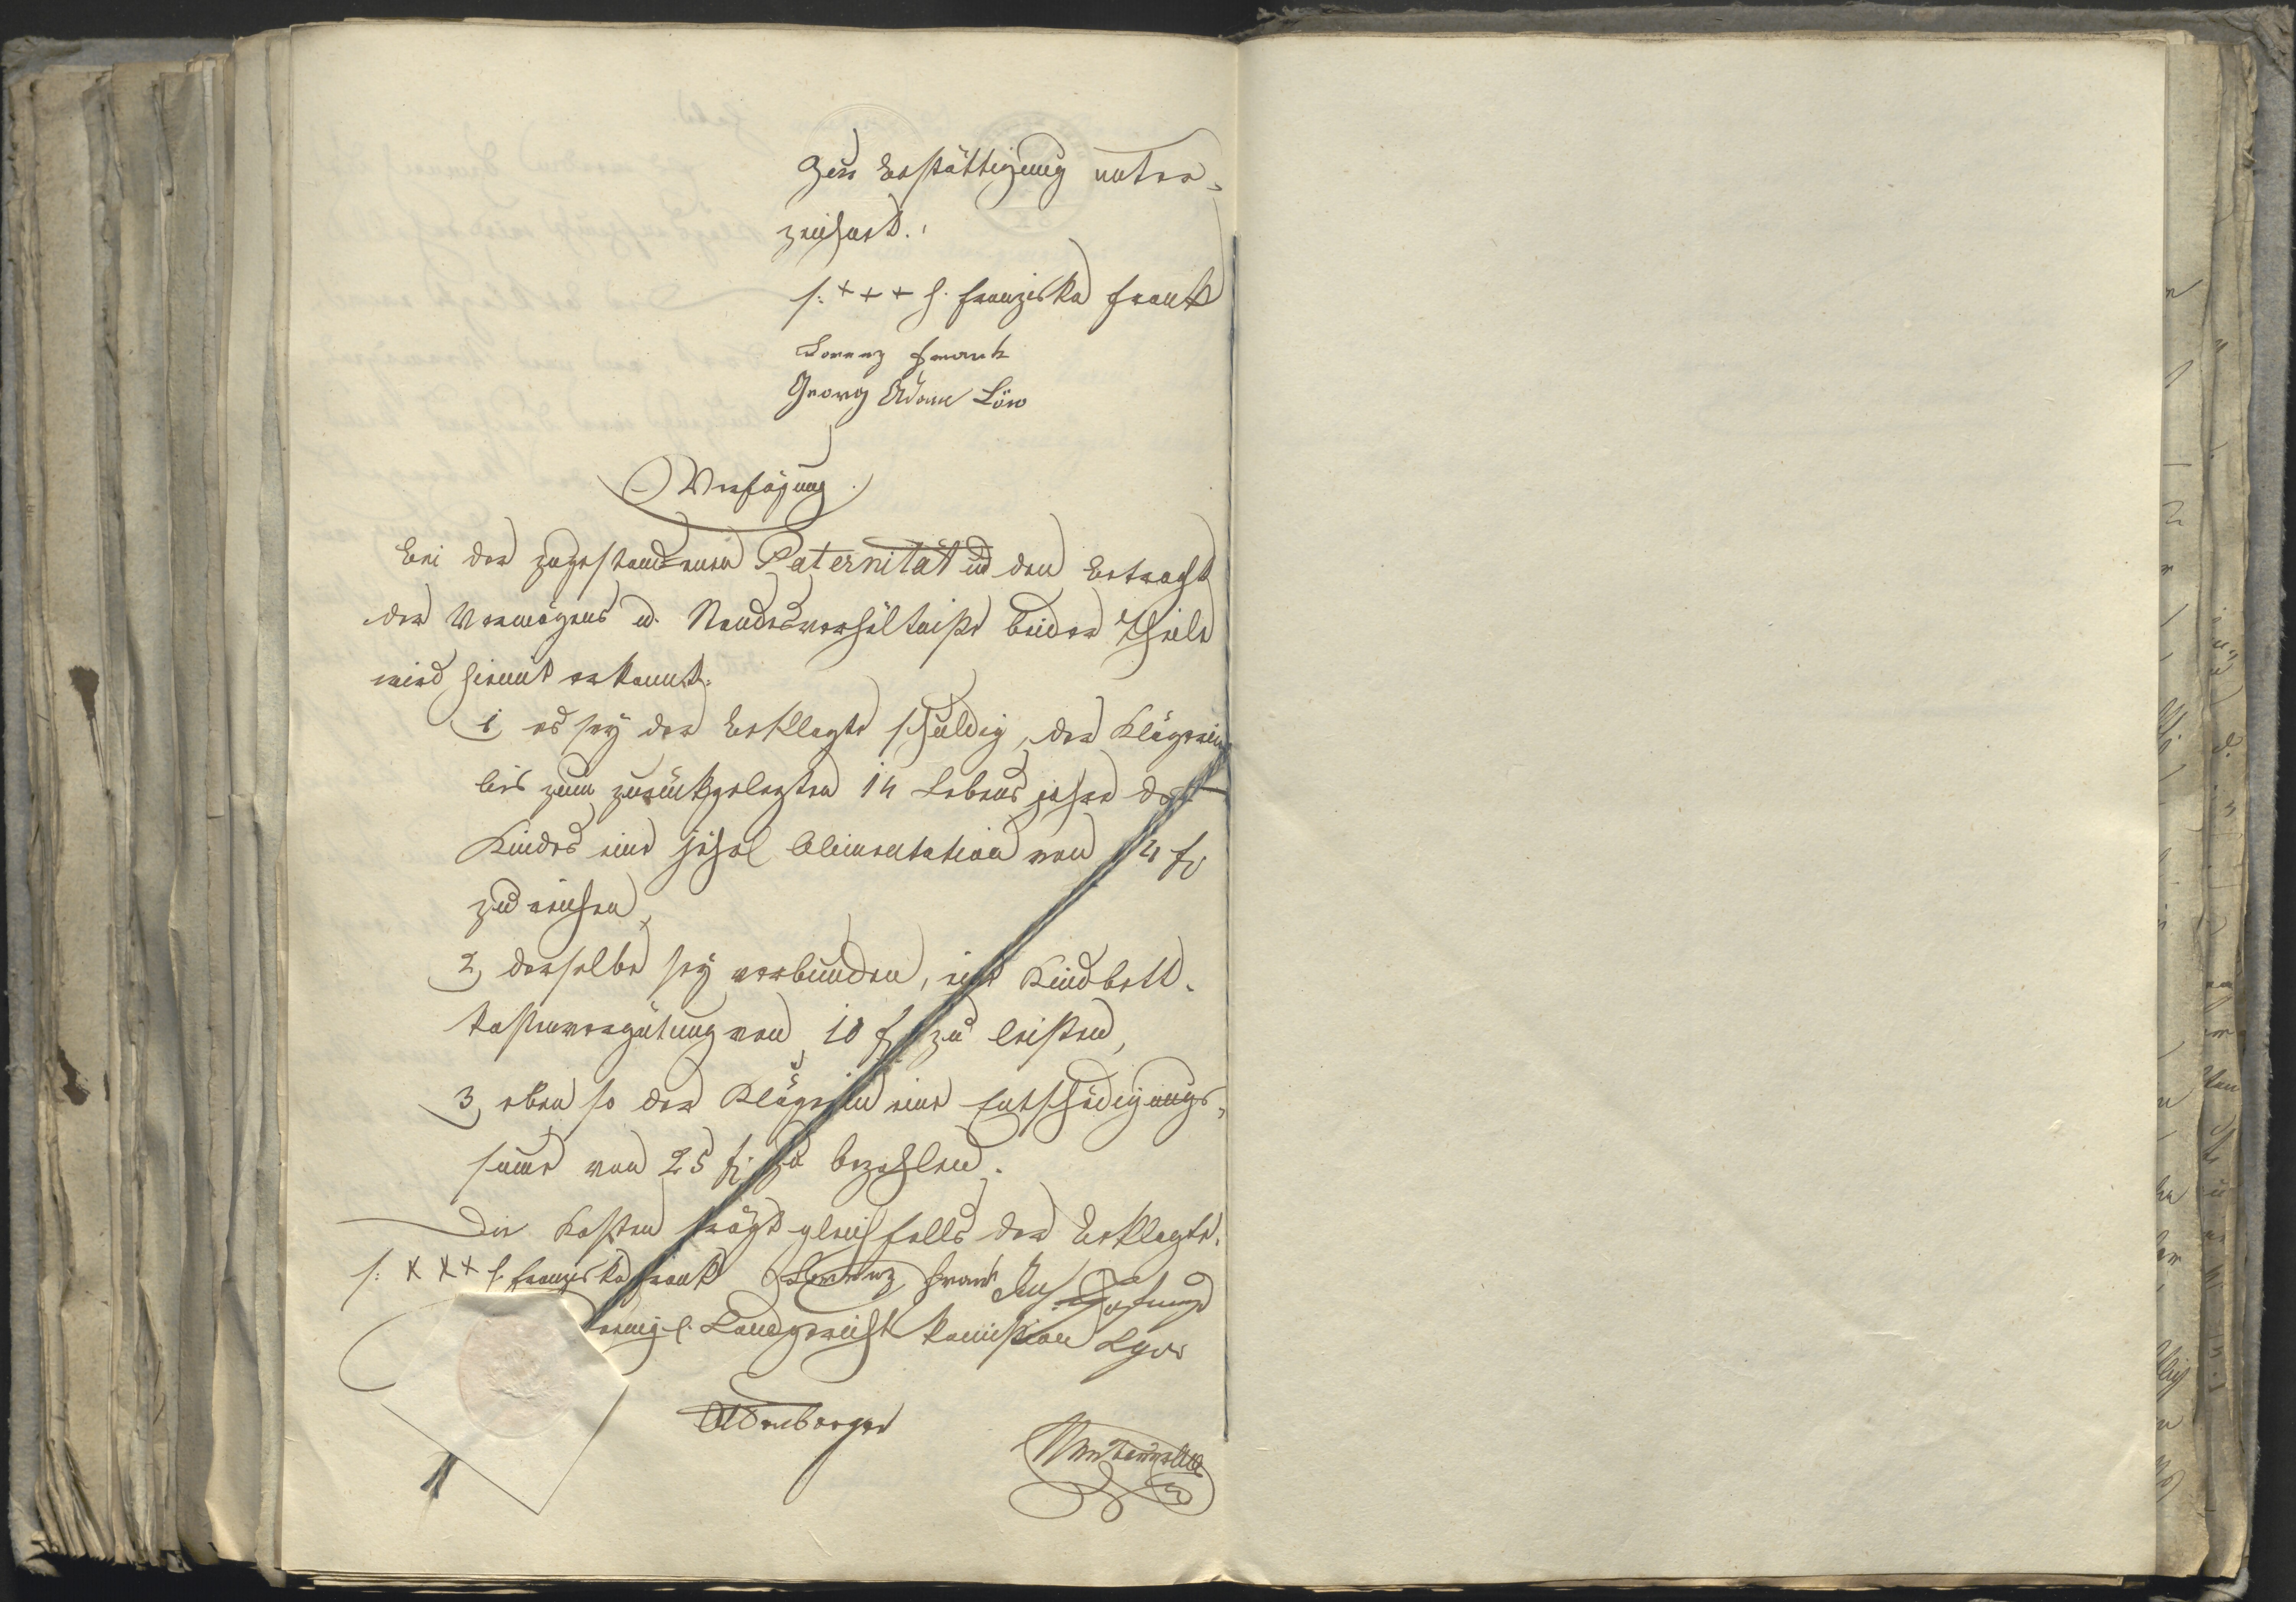 Zur Bestättigung unter-
zeichnet.
/: + + + :/ Franziska Frank
Lorenz Frank
Georg Adam Löw
Verfügung.
Bei der zugestandenen Paternität u den Betracht
der Vermögens u. Standesverhältniße beider Theile
wird hiemit erkannt:
1, es sey der Beklagte schuldig, der Klägerin
bis zum zurückgelegten 14 Lebens jahre des
Kindes eine jährl Alimentation von 4 fl
zu reichen,
2, derselbe sey verbunden, eine Kindbett-
kostenvergütung von 10 fl zu leisten,
3, eben so der Klägerin eine Entschädigungs-
sume von 25 fl. zu bezahlen.
Die Kosten trägt gleichfalls der Beklagte.
/: + + + :/ Franziska Frank Lorenz Frank
königl. Landgericht